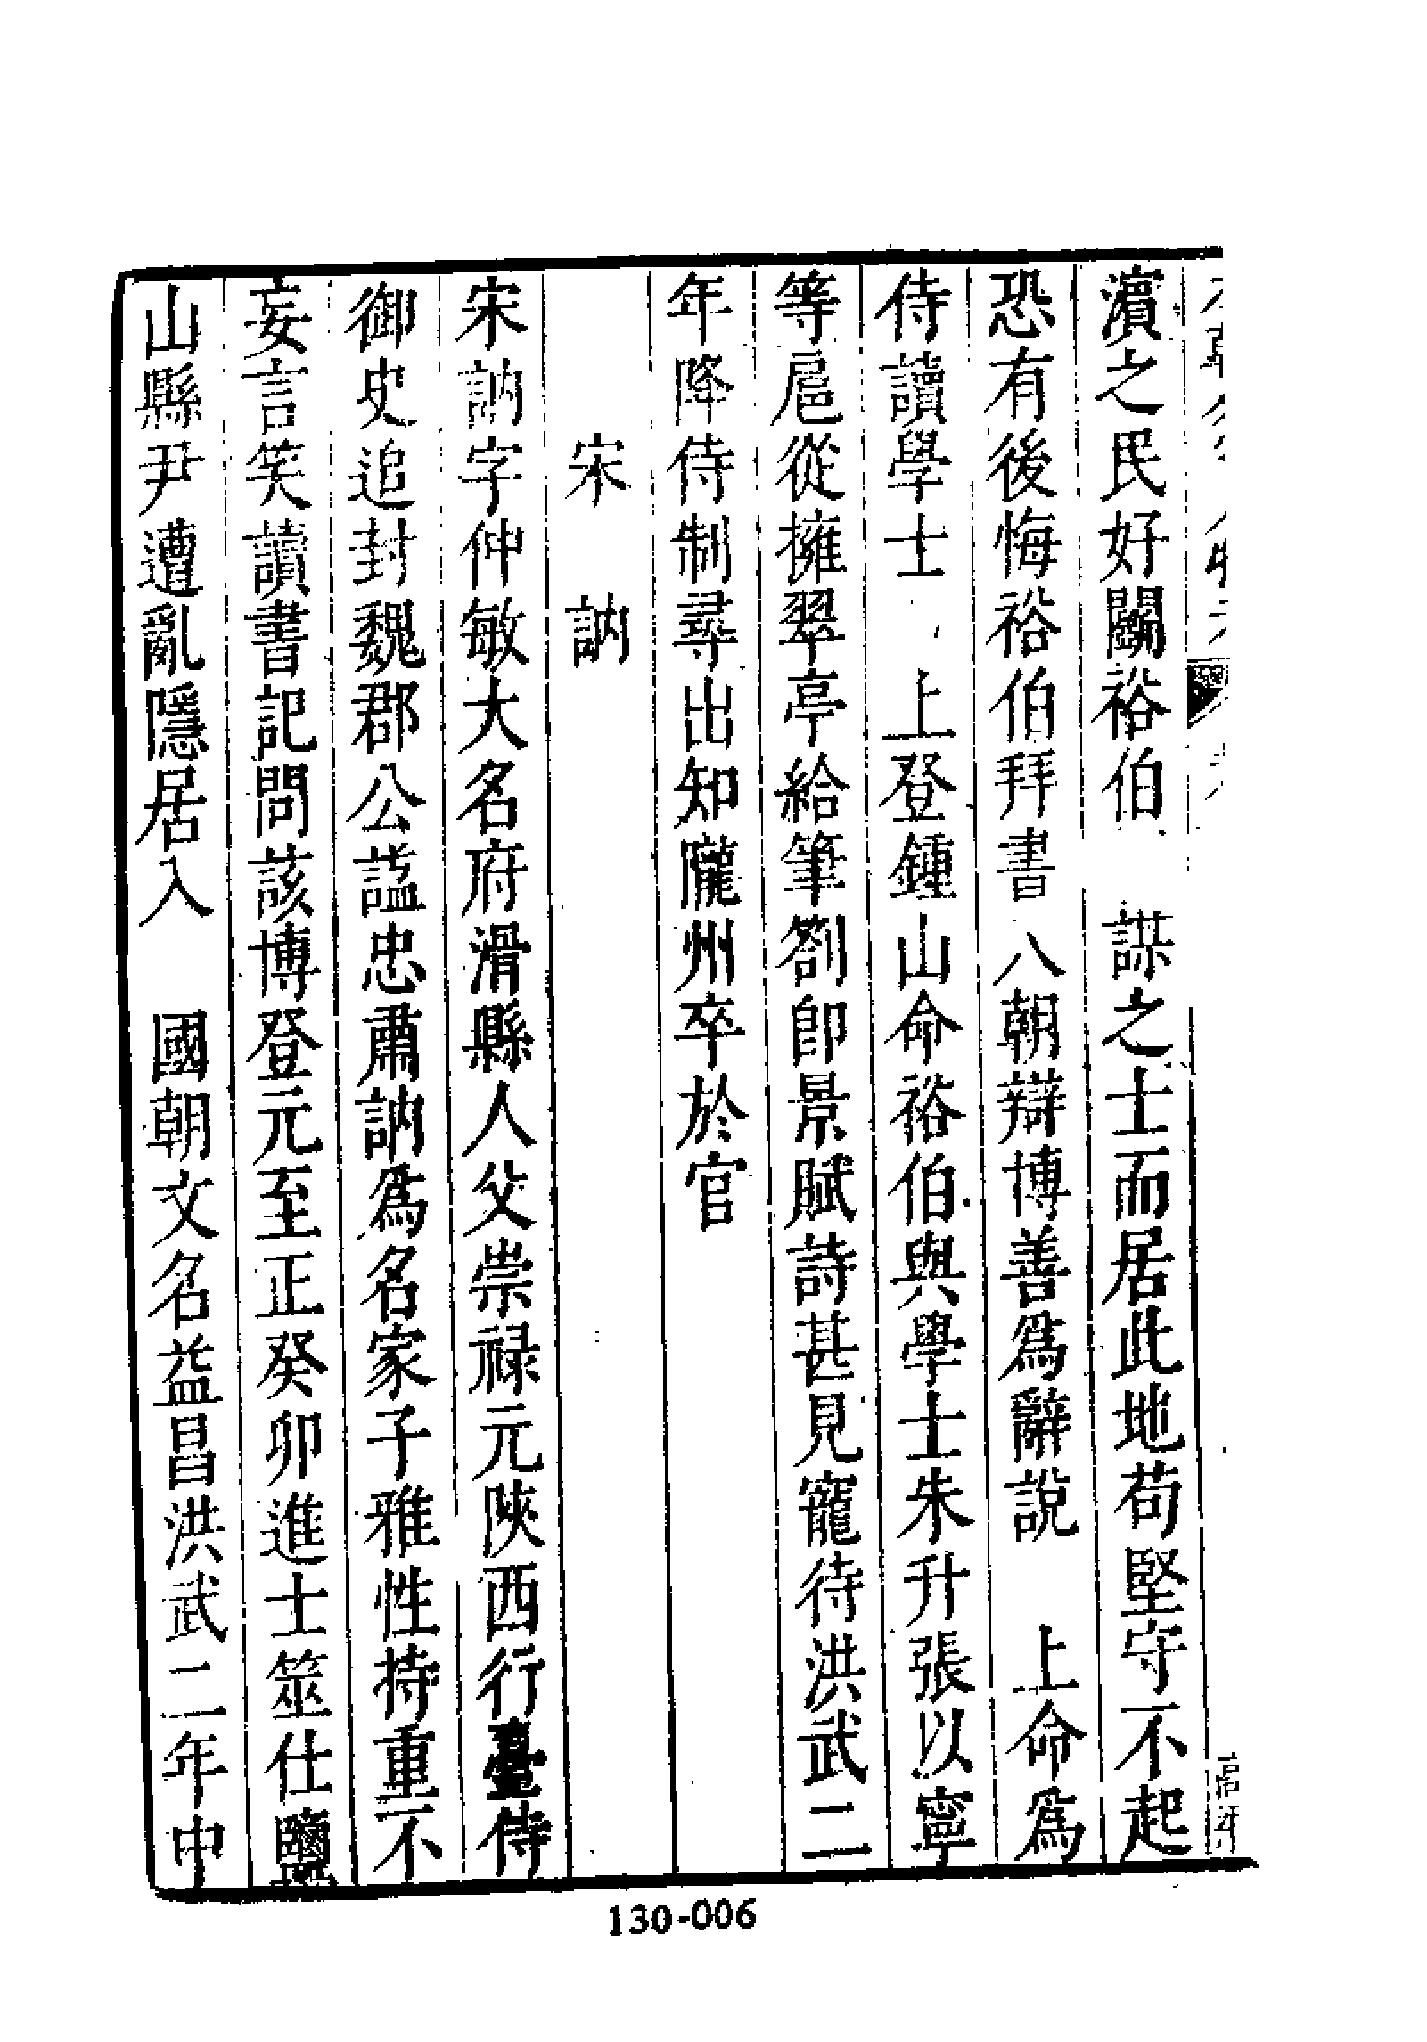 瀕之民好鬬裕伯　謀之士而居此地苟堅守不起
恐有後悔裕伯拜書入朝辯博善爲辭說　上命爲
侍讀學士　上登鍾山命裕伯與學士朱升張以寧
等扈從擁翠亭給筆劄即景賦詩甚見寵待洪武二
年降侍制尋出知隴州卒於官
宋訥
宋訥字仲敏大名府滑縣人父崇禄元陝西行臺侍
御史追封魏郡公謚忠肅訥爲名家子雅性持重不
妄言笑讀書記問該博登元至正癸卯進士筮仕鹽
山縣尹遭亂隱居入　國朝文名益昌洪武二年中
130-006